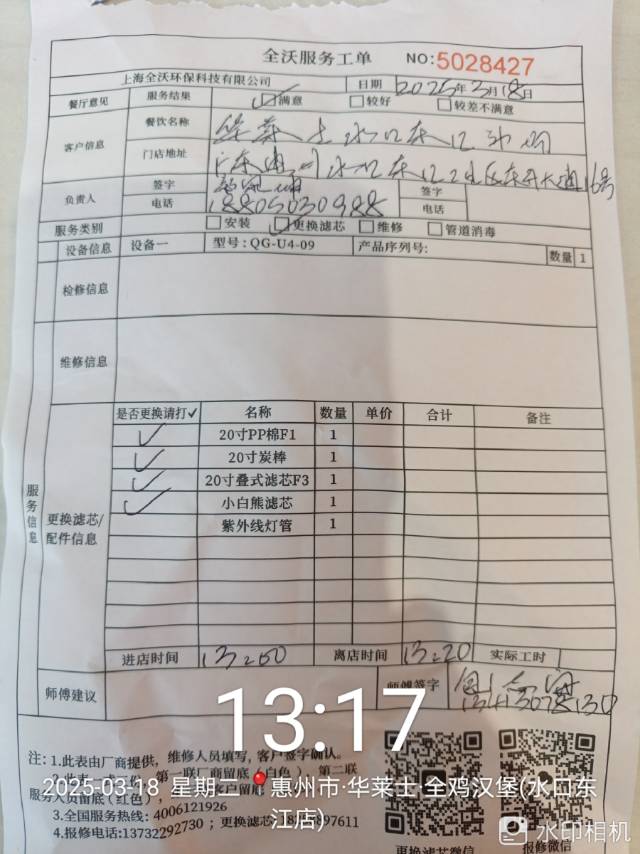 全沃服务工单 NO:5028427
上海全沃环保科技有限公司 日期 2025年3月18日
餐厅意见 服务结果 ☑满意 □较好 □较差不满意
客户信息 餐饮名称 华莱士水口东江
门店地址 广东惠州水口东江 16号
负责人 签字 签字
电话 18805030988 电话
服务类别 □安装 ☑更换滤芯 □维修 □管道消毒
设备信息 设备一 型号:QG-U4-09 产品序列号: 数量 1
检修信息
维修信息
服务信息
更换滤芯/配件信息
是否更换请打✓ 名称 数量 单价 合计 备注
✓ 20寸PP棉F1 1
✓ 20寸炭棒 1
✓ 20寸叠式滤芯F3 1
✓ 小白熊滤芯 1
紫外线灯管 1
进店时间 13:00 离店时间 13:20 实际工时
师傅建议 师傅签字
13:17
注: 1.此表由厂商提供, 维修人员填写, 客户签字确认。
第一联厂商留底(白色), 第二联
2025-03-18 星期二 惠州市·华莱士·全鸡汉堡(水口东江店)
服务人员留底(红色)
3.全国服务热线: 4006121926
4.报修电话:13732292730 ; 更换滤芯
更换滤芯微信 报修微信
水印相机